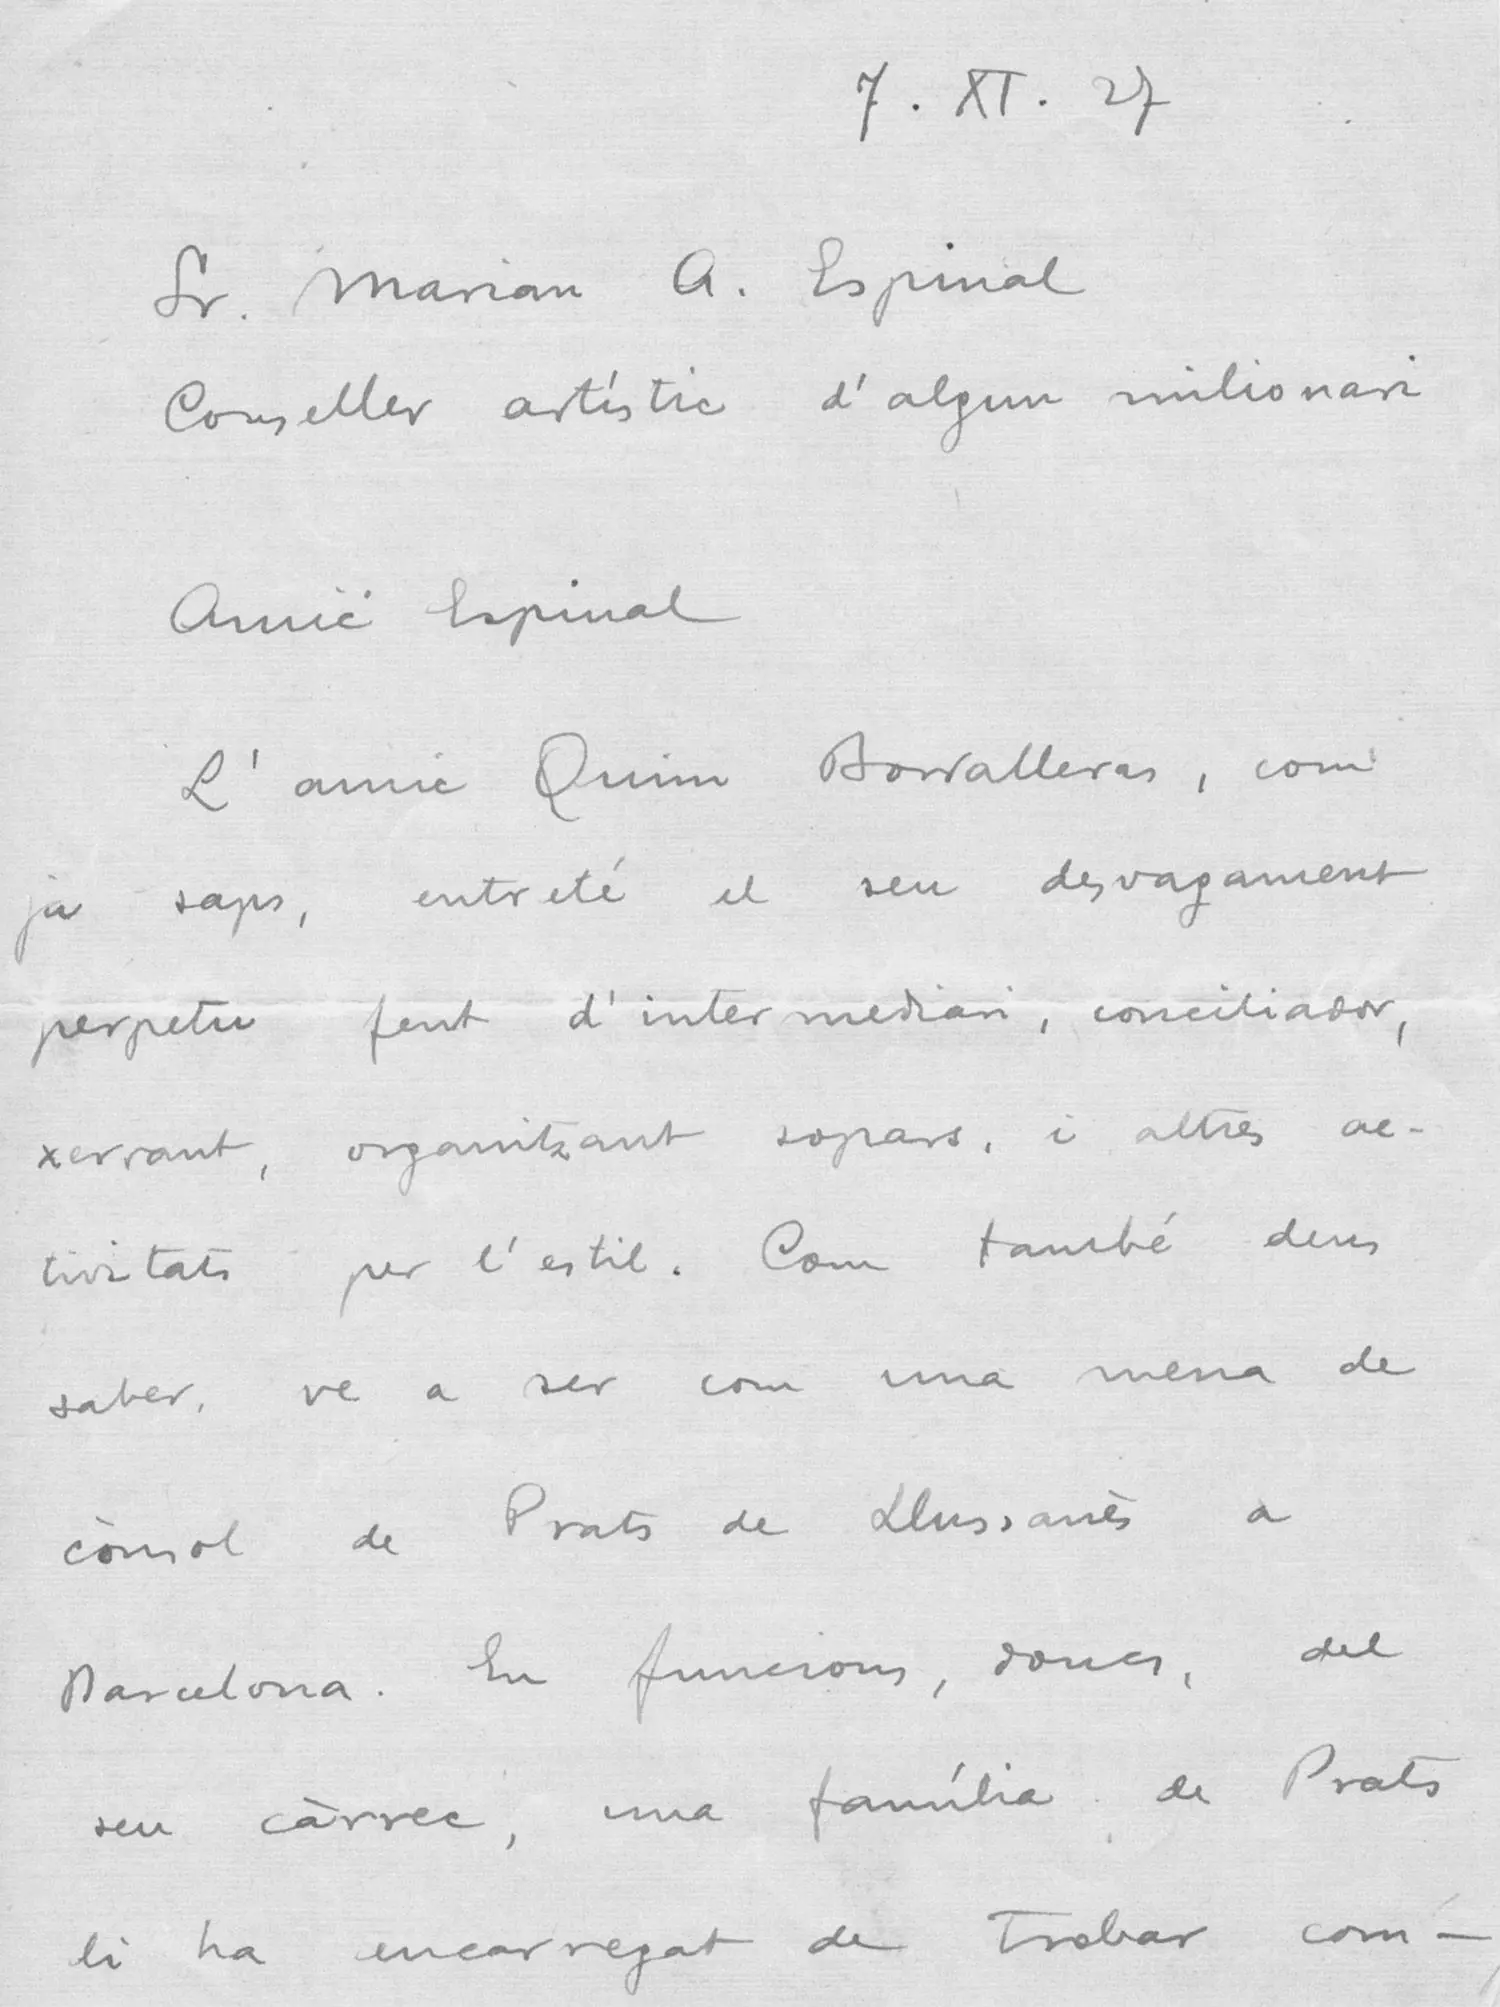 7. XI. 27
Sr. Marian A. Espinal
Conseller artístic d'algun milionari
Amic Espinal
L'amic Quim Borralleras, com
ja saps, entreté el seu desvagament
perpetu fent d'intermediari, conciliador,
xerrant, organitzant sopars, i altres ac-
tivitats per l'estil. Com també deus
saber, ve a ser com una mena de
cònsol de Prats de Llussanès a
Barcelona. En funcions, doncs, del
seu càrrec, una família de Prats
li ha encarregat de trobar com-